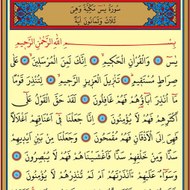 سُورَةُ يٰسٓ مَكِّيَّةٌ وَهِيَ
ثَلَاثٌ وَثَمَانُونَ اٰيَةً
بِسْمِ اللّٰهِ الرَّحْمٰنِ الرَّحِيمِ
يٰسٓ ۝ وَالْقُرْاٰنِ الْحَكِيمِ ۝ اِنَّكَ لَمِنَ الْمُرْسَلِينَ ۝ عَلٰى
صِرَاطٍ مُسْتَقِيمٍ ۝ تَنْزِيلَ الْعَزِيزِ الرَّحِيمِ ۝ لِتُنْذِرَ قَوْمًا
مَٓا اُنْذِرَ اٰبَٓاؤُهُمْ فَهُمْ غَافِلُونَ ۝ لَقَدْ حَقَّ الْقَوْلُ عَلٰٓى
اَكْثَرِهِمْ فَهُمْ لَا يُؤْمِنُونَ ۝ اِنَّا جَعَلْنَا فِٓي اَعْنَاقِهِمْ اَغْلَالًا
فَهِيَ اِلَى الْاَذْقَانِ فَهُمْ مُقْمَحُونَ ۝ وَجَعَلْنَا مِنْ بَيْنِ اَيْدِيهِمْ
سَدًّا وَمِنْ خَلْفِهِمْ سَدًّا فَاَغْشَيْنَاهُمْ فَهُمْ لَا يُبْصِرُونَ ۝
وَسَوَٓاءٌ عَلَيْهِمْ ءَاَنْذَرْتَهُمْ اَمْ لَمْ تُنْذِرْهُمْ لَا يُؤْمِنُونَ ۝